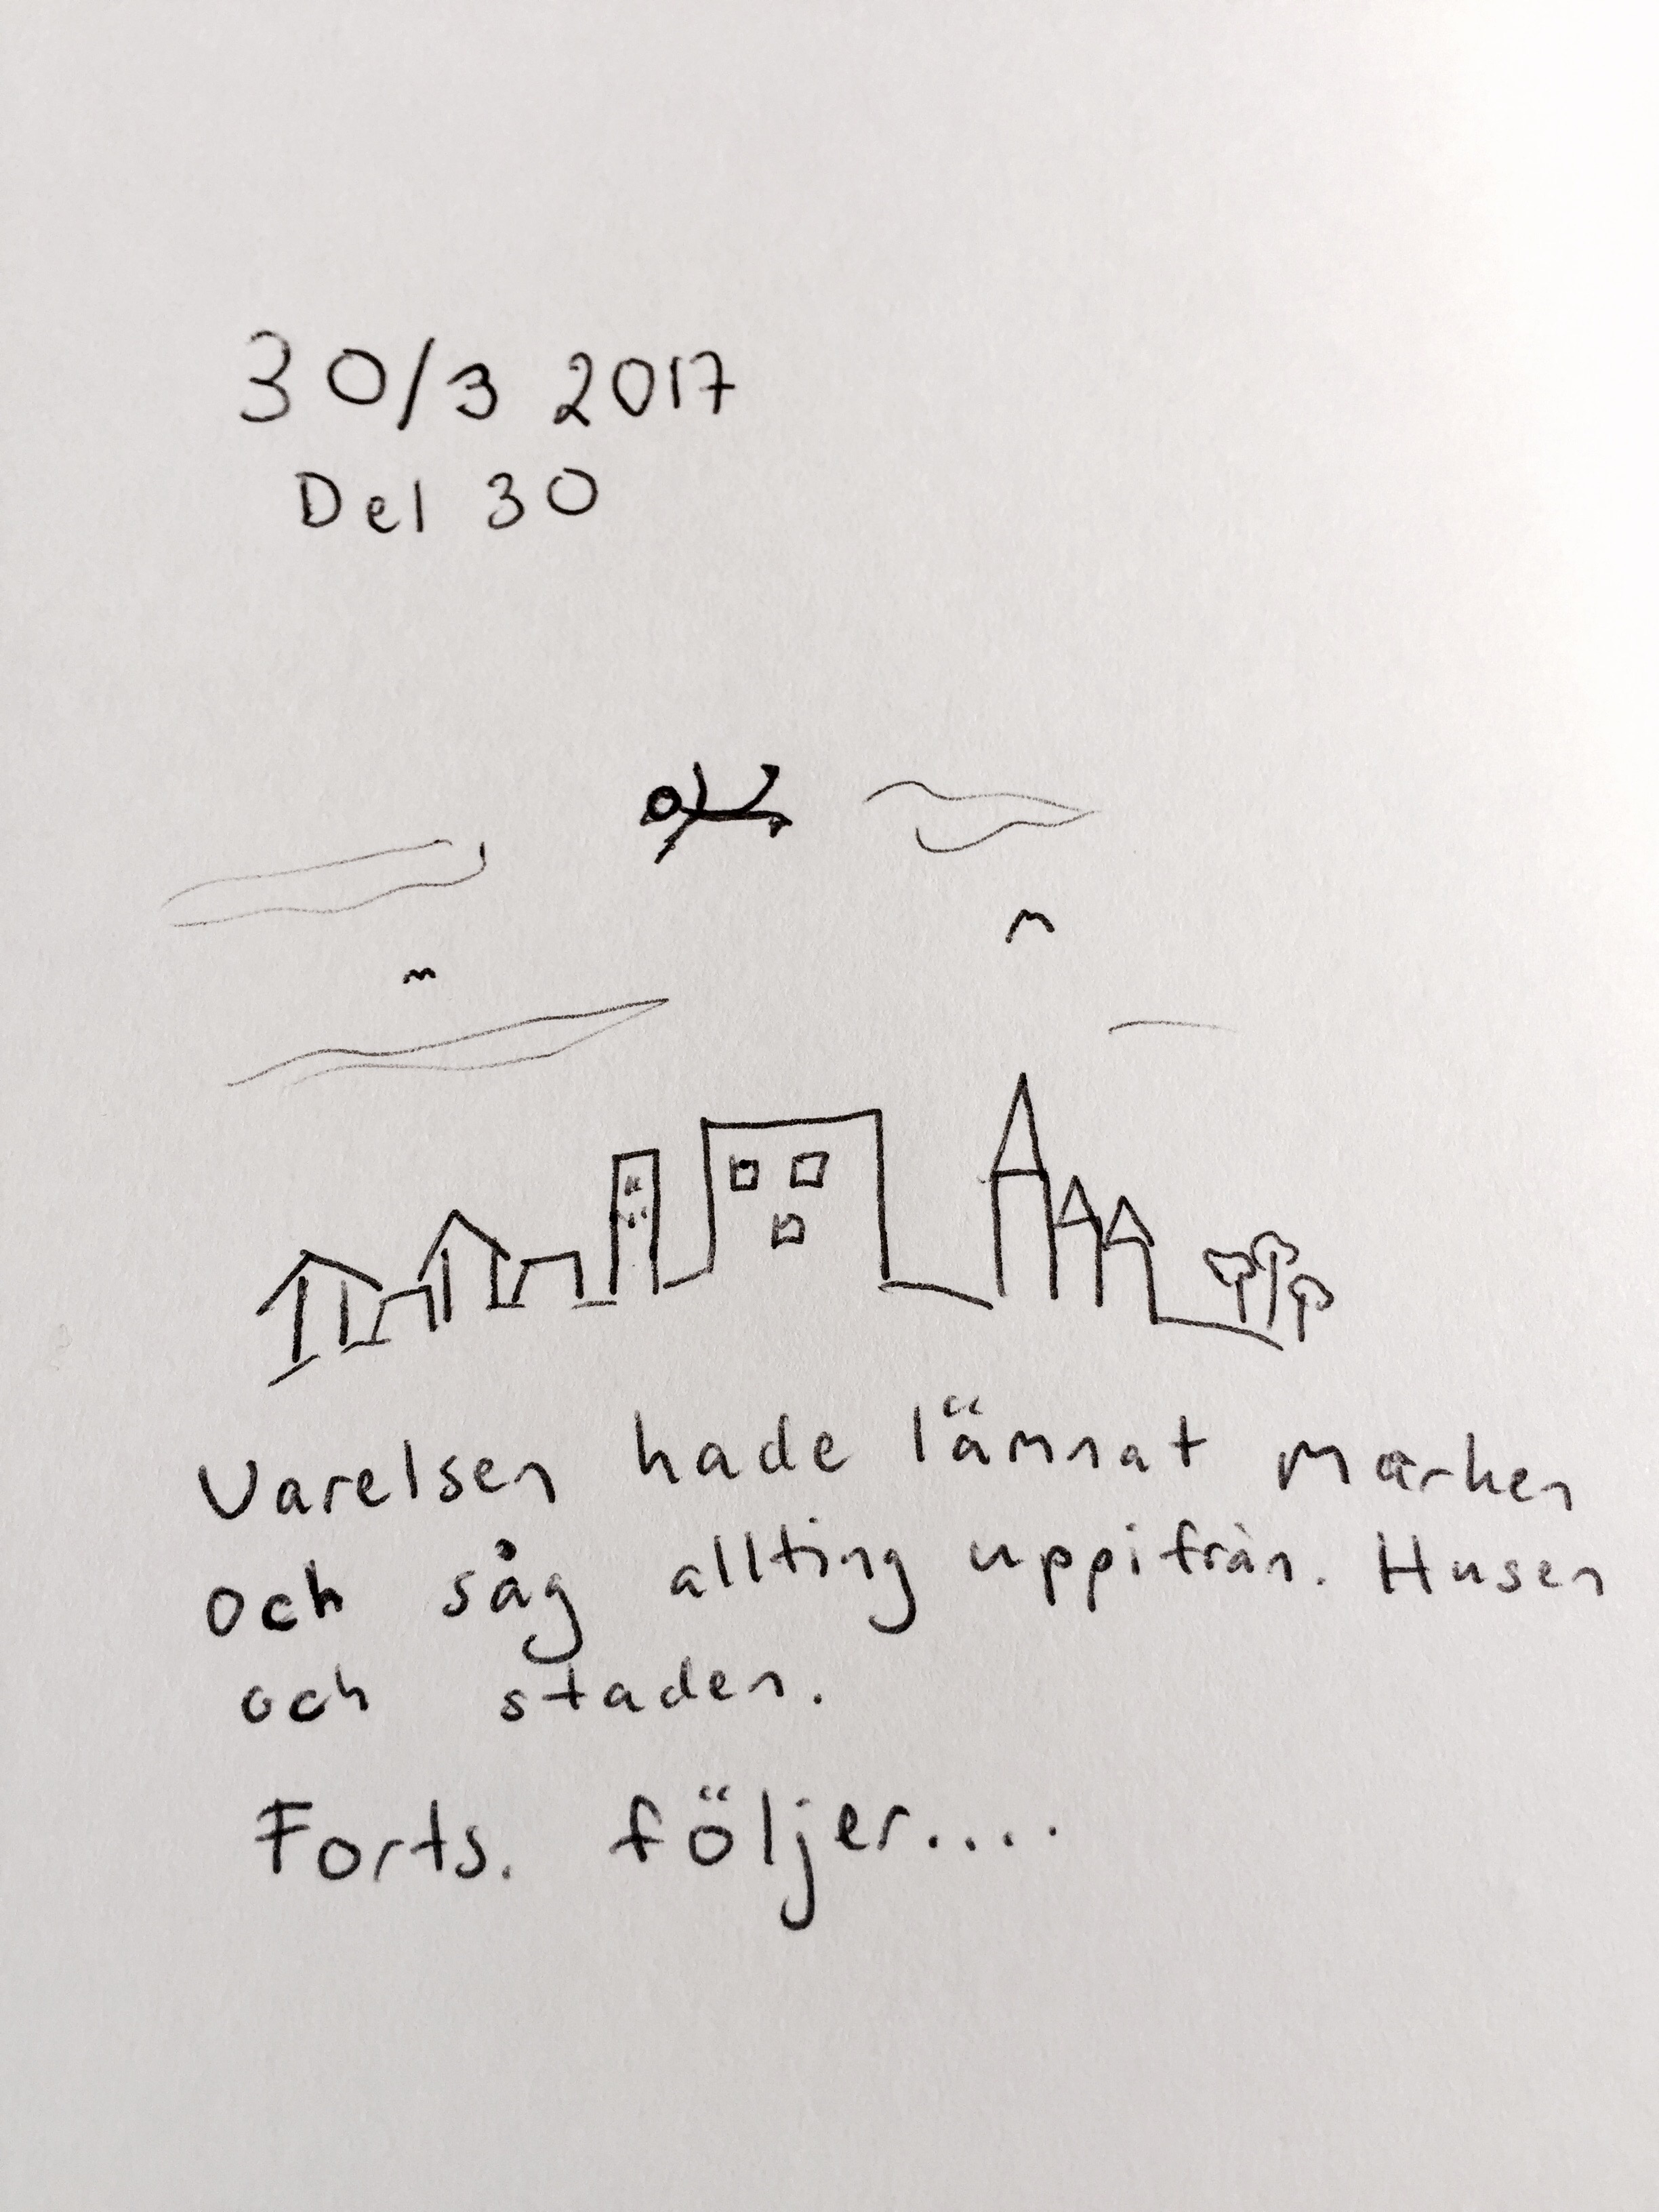 30/3 2017
Del 30
Varelsen hade lämnat marken
och såg allting uppifrån. Husen
och staden.
Forts. följer....